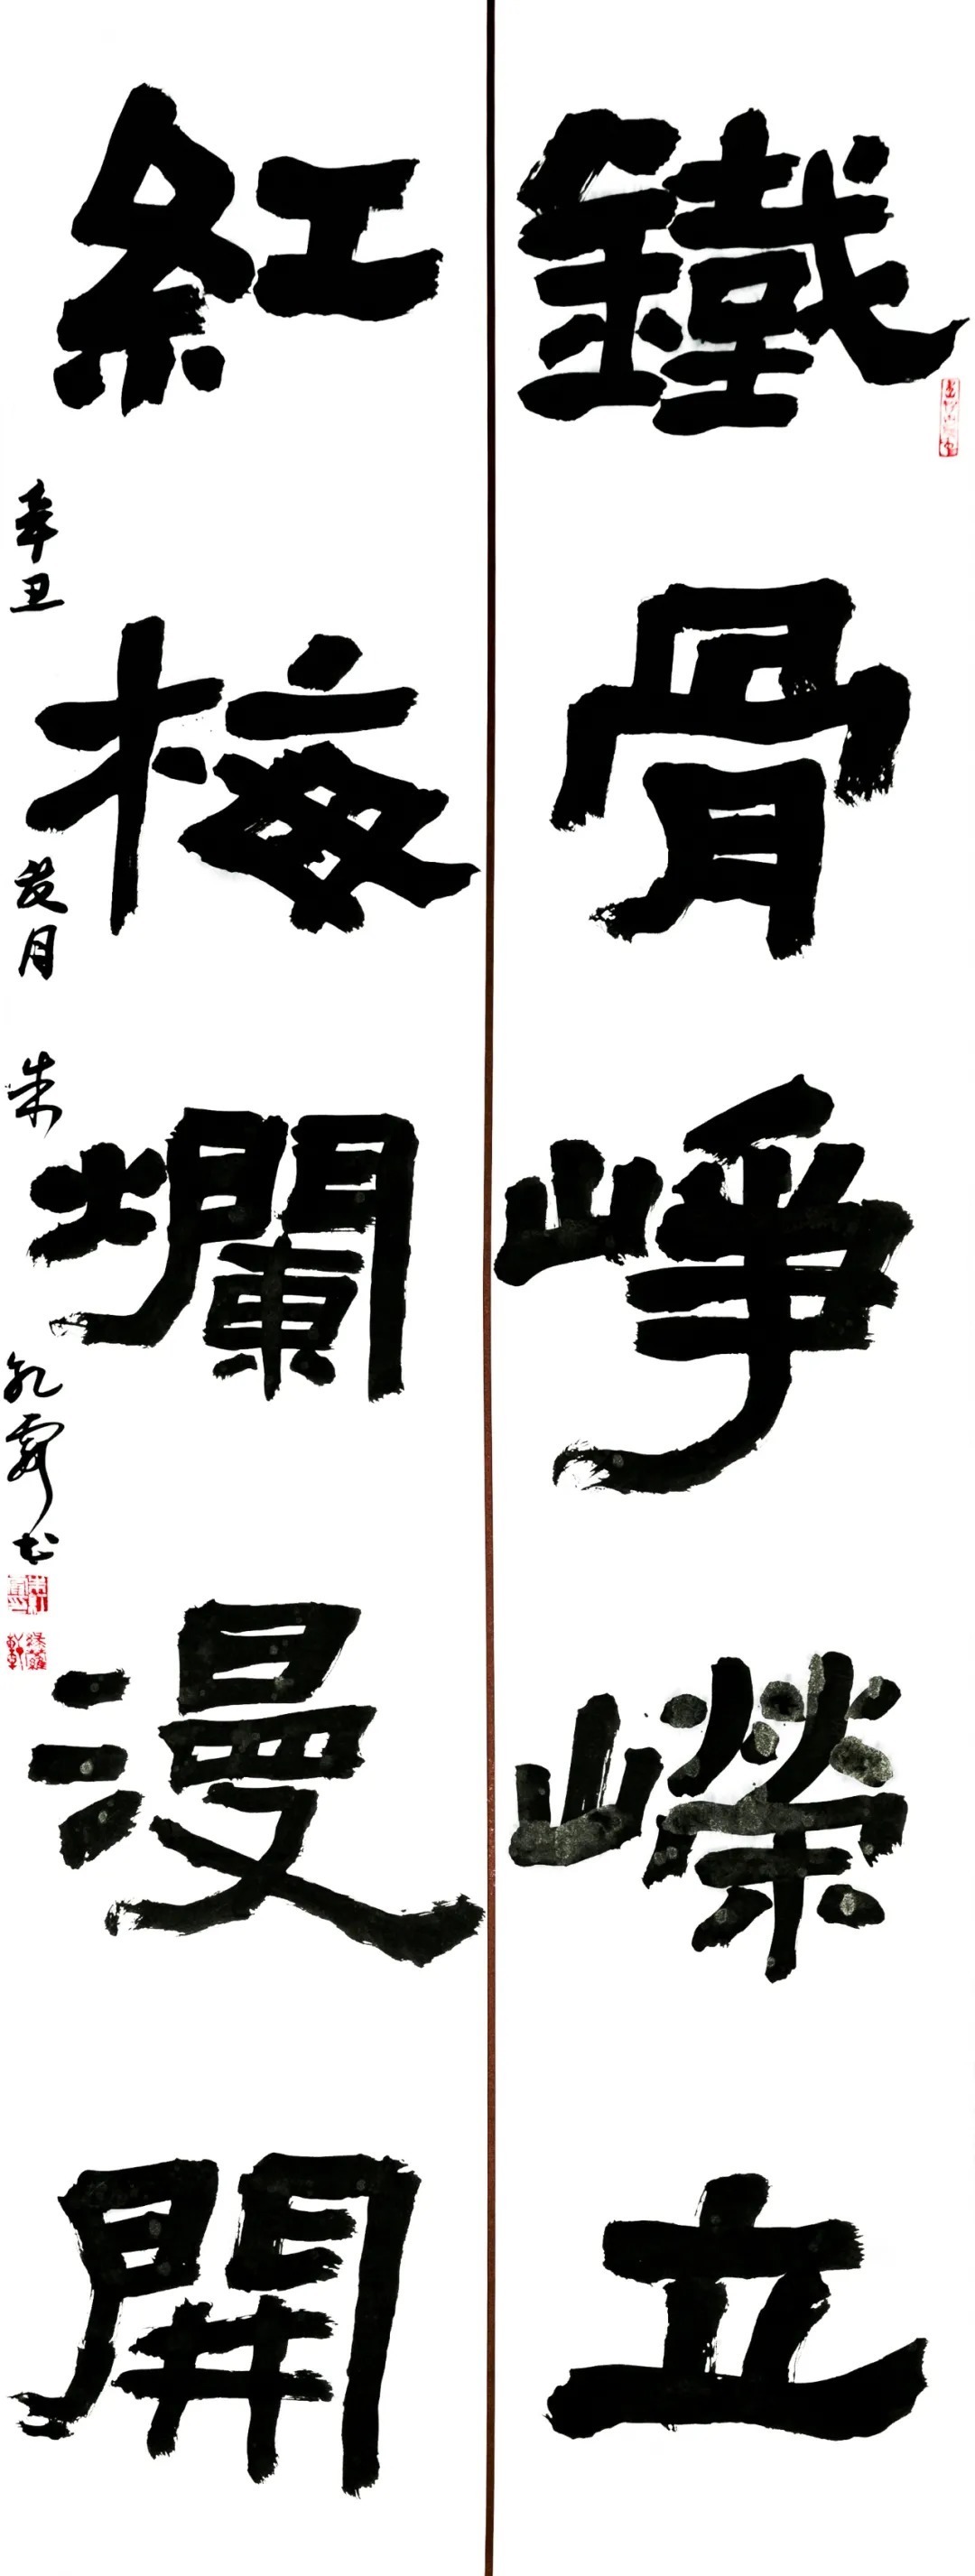 鐵骨崢嶸立
紅梅爛漫開
辛丑 戌月 朱